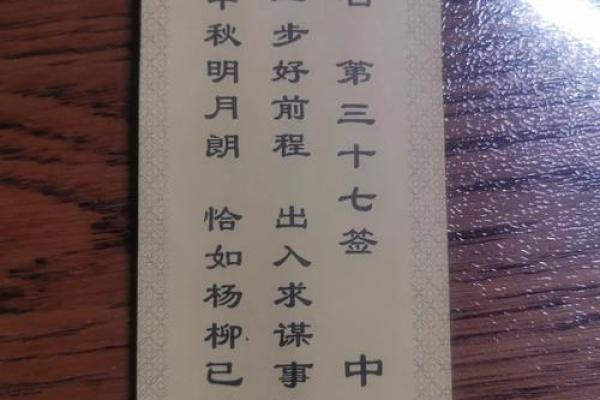 第三十七签 中
步好前程 出入求谋事
秋明月朗 恰如杨柳已